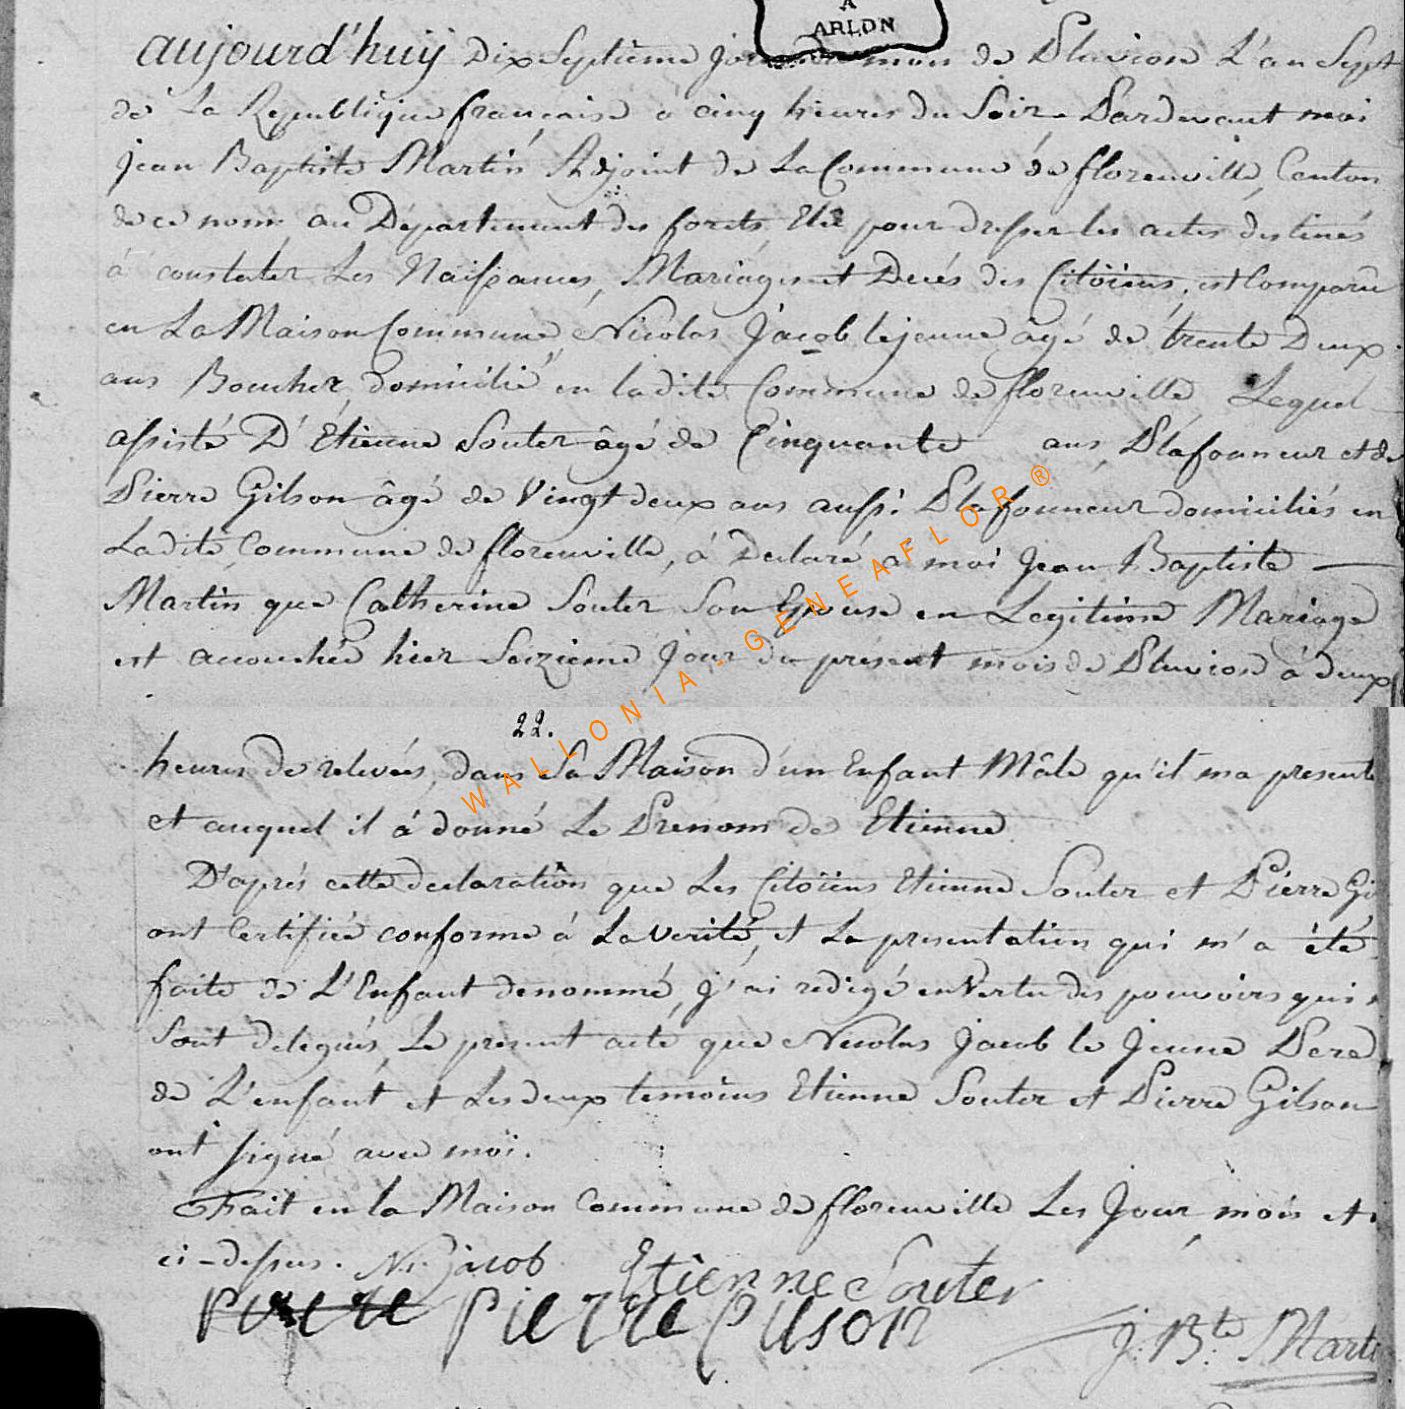 A
ARLON
aujourd'huy Dix Septieme jour du mois de Pluviose L'an Sept
de La Republique française à cinq heures du Soir Pardevant moi
jean Baptiste Martin Adjoint de La Commune de florenville, Canton
de ce nom au Département des forets Elu pour dresser les actes destinés
à constater Les Naissances, Mariages et Decés des Citoiens, est Comparu
en La Maison Commune, Nicolas Jacob lejeune âgé de trente Deux
ans Boucher, domicilié en ladite Commune de florenville, Lequel
assisté D'Étienne Souter âgé de Cinquante ans, Plafonneur et de
Pierre Gilson âgé de Vingt deux ans aussi Plafonneur domiciliés en
Ladite Commune de florenville, à Declaré a moi Jean Baptiste —
Martin que Catherine Souter Son Epouse en Legitime Mariage
est accouchée hier Seizieme Jour du présent mois de Pluviose à deux
22.
heures de relevées, dans Sa Maison d'un Enfant Mâle qu'il ma presenté
et auquel il à donné Le Prenom de Etienne
D'aprés cette declaration que Les Citoiens Etienne Souter et Piérre Gi
ont Certifiée conforme à La verité, et La presentation qui m'a été
faite de L'Enfant denommé, j'ai redigé en Vertu des pouvoirs qui
Sont delegués, Le present acte que Nicolas Jacob le Jeune Pere
de L'enfant et Les deux temoins Etienne Souter et Pierre Gilson
ont signé avec moi.
Fait en la Maison Commune de florenville Les Jour, mois et
ci-dessus. N. jacob Etienne Souter
pierre Pierre Gilson
J. B.te Marti
WALLONIA - GENEAFLOR ®